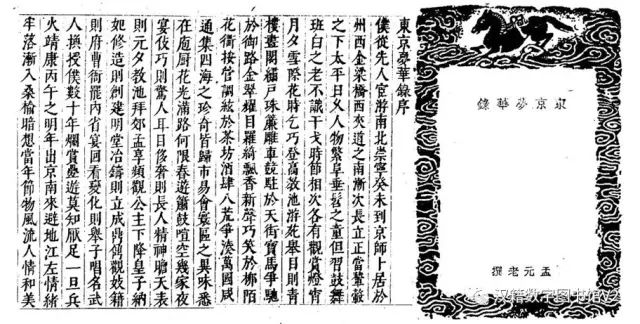 東京夢華錄
孟元老撰
東京夢華錄序
僕從先人宦游南北崇寧癸未到京師卜居於
州西金梁橋西夾道之南漸次長立正當輦轂
之下太平日久人物繁阜垂髫之童但習鼓舞
班白之老不識干戈時節相次各有觀賞燈宵
月夕雪際花時乞巧登高教池游苑舉目則青
樓畫閣繡戶珠簾雕車競駐於天街寶馬爭馳
於御路金翠耀目羅綺飄香新聲巧笑於柳陌
花衢按管調絃於茶坊酒肆八荒爭湊萬國咸
通集四海之珍奇皆歸市易會寰區之異味悉
在庖厨花光滿路何限春遊簫鼓喧空幾家夜
宴伎巧則驚人耳目侈奢則長人精神瞻天表
則元夕教池拜郊孟享頻觀公主下降皇子納
妃修造則創建明堂冶鑄則立成鼎鼐觀妓籍
則府曹衙罷內省宴回看變化則舉子唱名武
人換授僕數十年爛賞疊遊莫知厭足一旦兵
火靖康丙午之明年出京南來避地江左情緒
牢落漸入桑榆暗想當年節物風流人情和美
汉籍数字图书馆V2